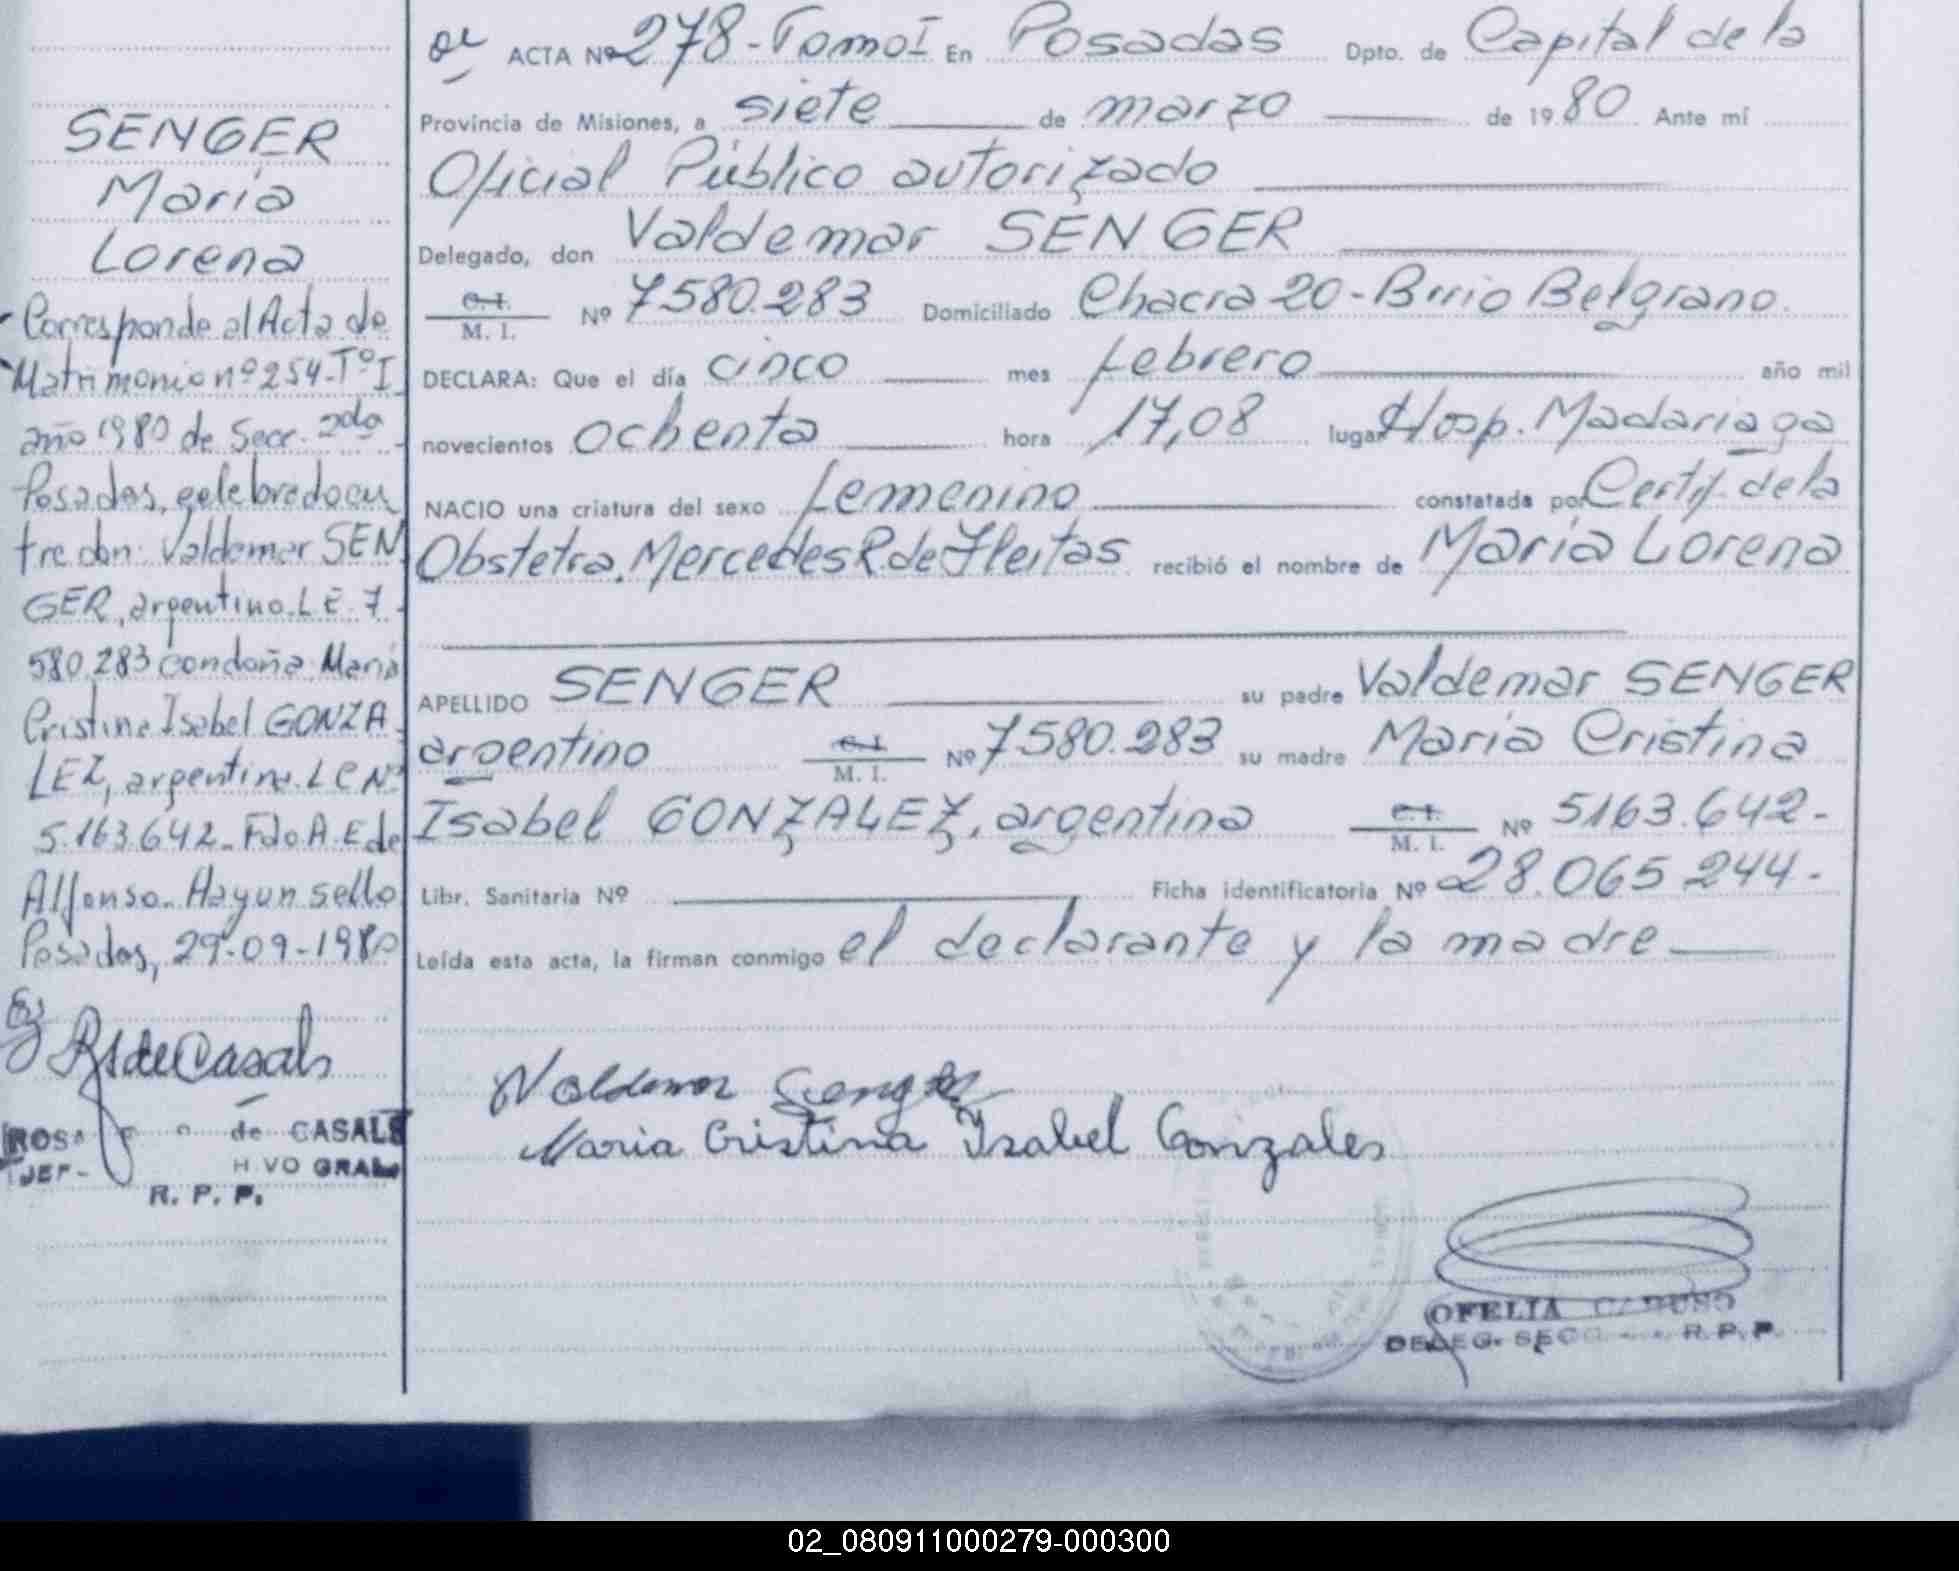 SENGER
María
Lorena
Corresponde al Acta de
Matrimonio nº 254-Tº I
año 1980 de Secc. 2da
Posadas, celebrado en
tre don: Valdemar SEN
GER, argentino. L E. 7.
580.283 con doña María
Cristina Isabel GONZA
LEZ, argentina. L C Nº
5.163.642_ Fdo A. E de
Alfonso_ Hay un sello
Posadas, 29-09-1980
R de Casals
de CASALS
R. P. P.
ACTA Nº 278-Tomo I En Posadas Dpto. de Capital de la
Provincia de Misiones, a siete de marzo de 19 80 Ante mí
Oficial Público autorizado
Delegado, don Valdemar SENGER
C. I. M. I. Nº 7580.283 Domiciliado Chacra 20-Brrio Belgrano.
DECLARA: Que el día cinco mes febrero año mil
novecientos ochenta hora 17,08 lugar Hosp. Madariaga
NACIO una criatura del sexo femenino constatada por Certif. de la
Obstetra. Mercedes R. de Fleitas recibió el nombre de María Lorena
APELLIDO SENGER su padre Valdemar SENGER
argentino C. I. M. I. Nº 7580.283 su madre María Cristina
Isabel GONZALEZ, argentina C. I. M. I. Nº 5163.642-
Libr. Sanitaria Nº Ficha identificatoria Nº 28.065 244-
Leída esta acta, la firman conmigo el declarante y la madre
Valdemar Senger
Maria Cristina Isabel Gonzales
OFELIA CARUSO
DELEG. SECC R. P. P.
02_080911000279-000300